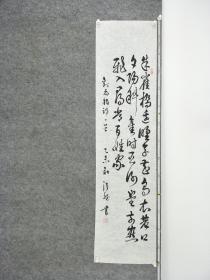 朱雀橋邊野草花烏衣巷口
夕陽斜舊時王謝堂前燕
飛入尋常百姓家
劉禹錫詩一首 乙未 書